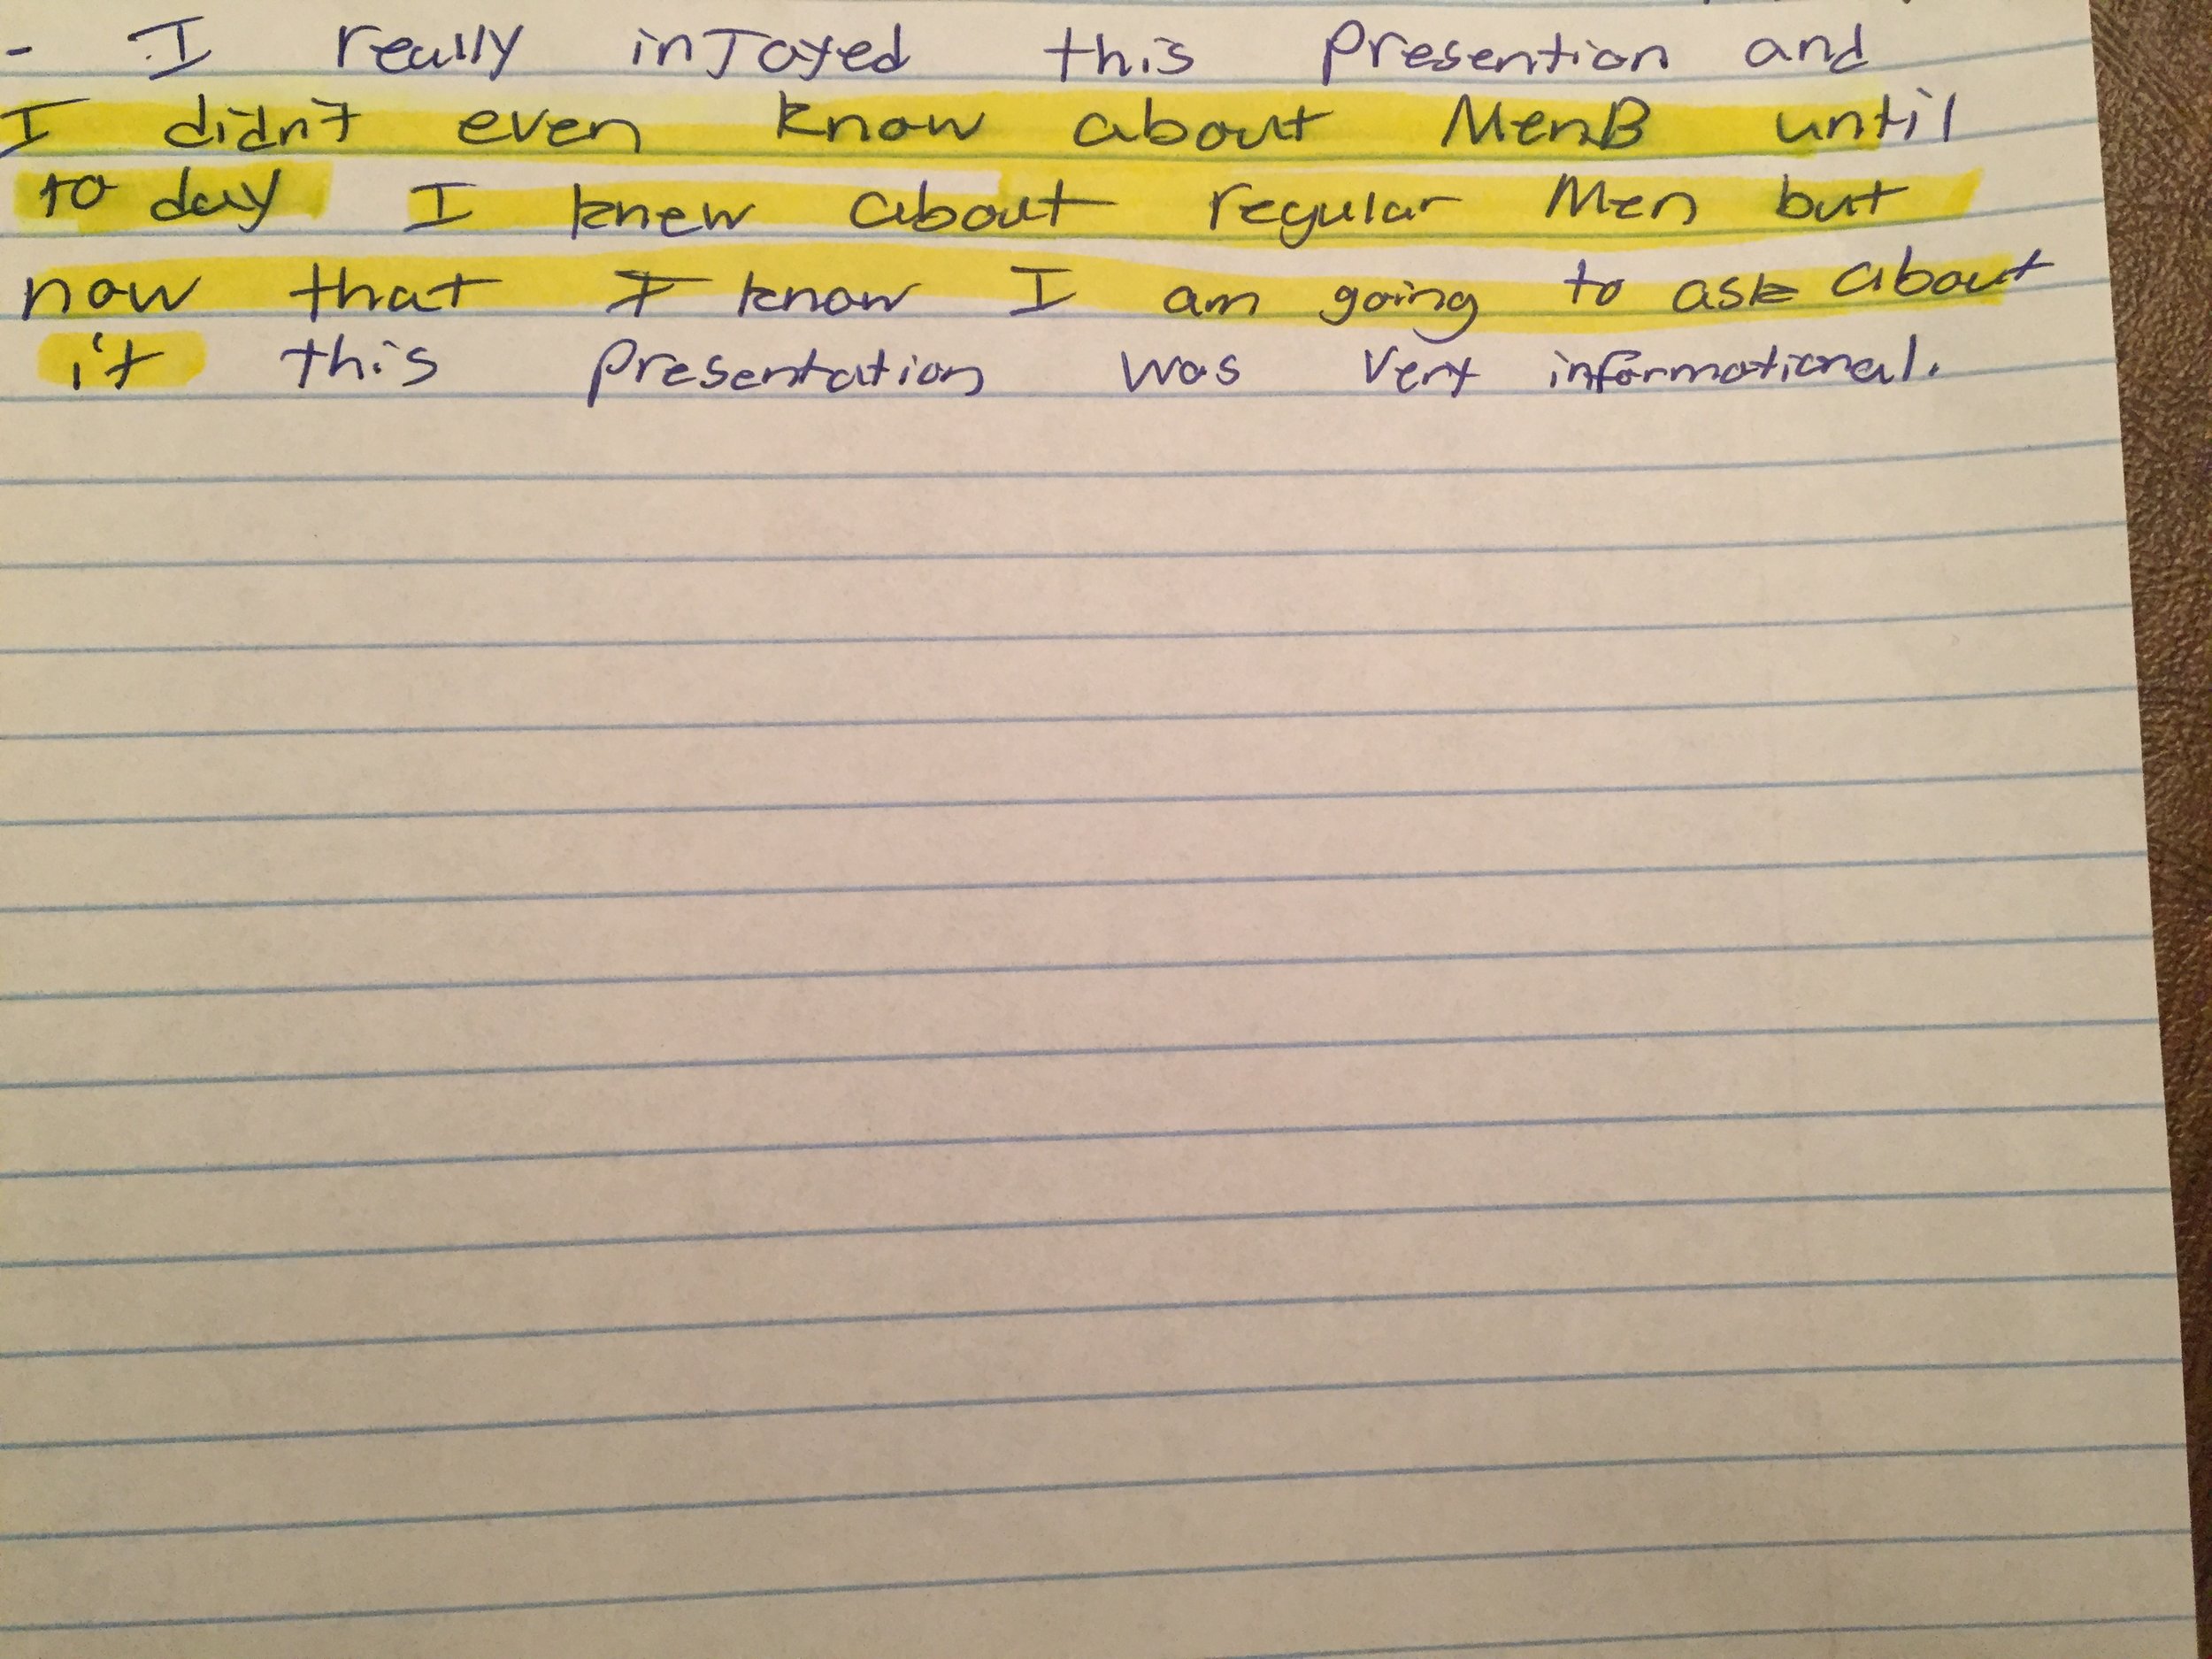 - I really inJoyed this presention and
I didn't even know about MenB until
to day I knew about regular Men but
now that I know I am going to ask about
it this presentation was very informational.